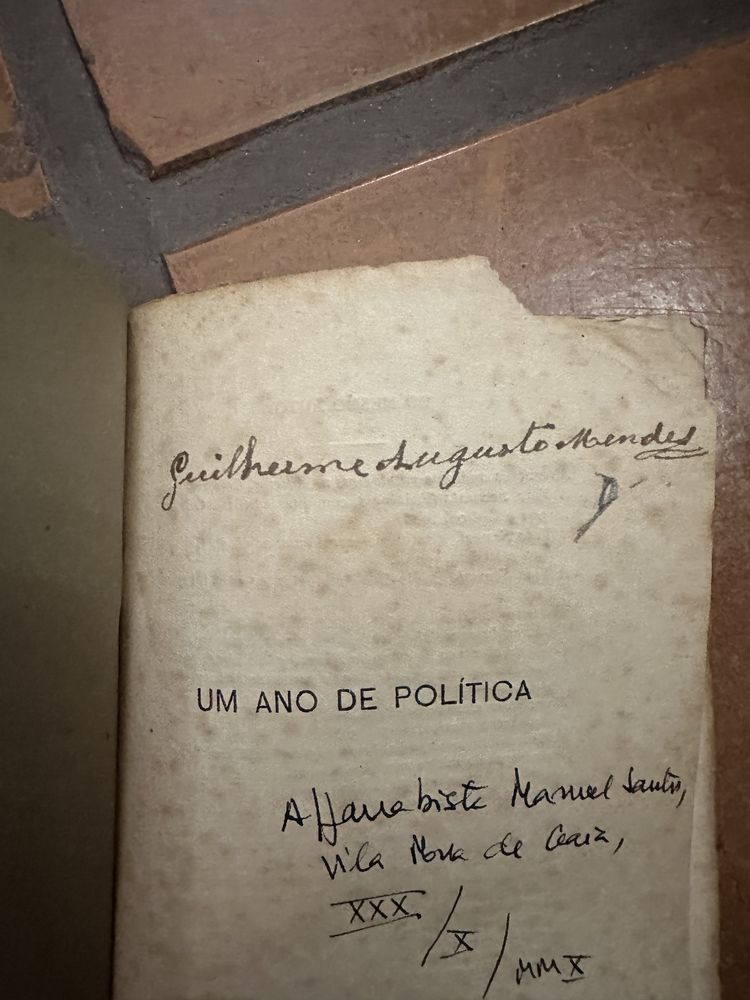 Guilherme Augusto Mendes
UM ANO DE POLÍTICA
Alfarrabista Manuel Santos,
Vila Nova de Gaia,
XXX/X/MMX